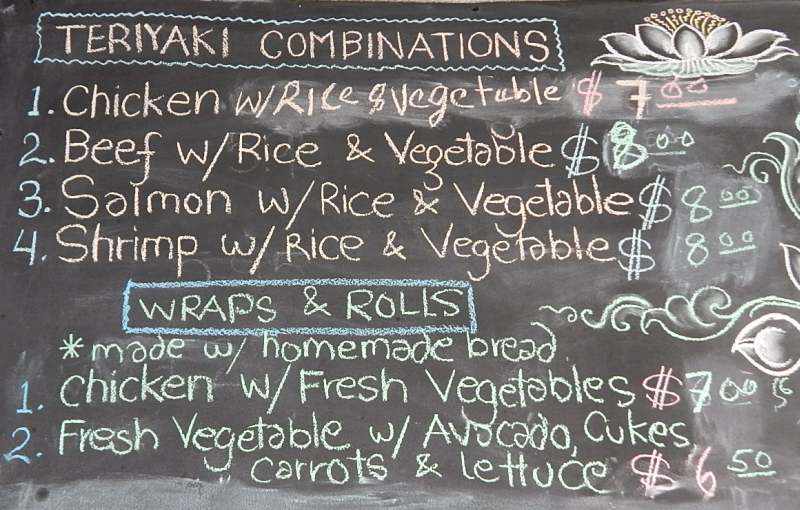 TERIYAKI COMBINATIONS
1. Chicken w/Rice & Vegetable $ 7 00
2. Beef w/Rice & Vegetable $ 8 00
3. Salmon w/Rice & Vegetable $ 8 00
4. Shrimp w/ Rice & Vegetable $ 8 00
WRAPS & ROLLS
* made w/ homemade bread
1. Chicken w/ Fresh Vegetables $ 7 00
2. Fresh Vegetable w/ Avocado, Cukes
carrots & lettuce $ 6 50